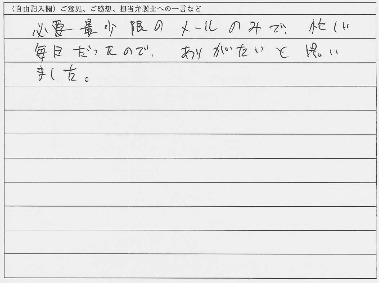 （自由記入欄）ご意見、ご感想、担当弁護士への一言など
必要最少限のメールのみで、忙しい
毎日だったので、ありがたいと思い
ました。